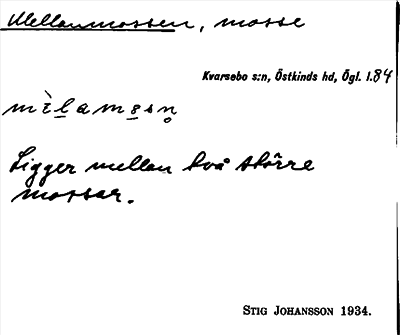 Mellanmossen, mosse
Kvarsebo s:n, Östkinds hd, Ögl. l.84
mìlamosn̥
Ligger mellan två större
mossar.
STIG JOHANSSON 1934.